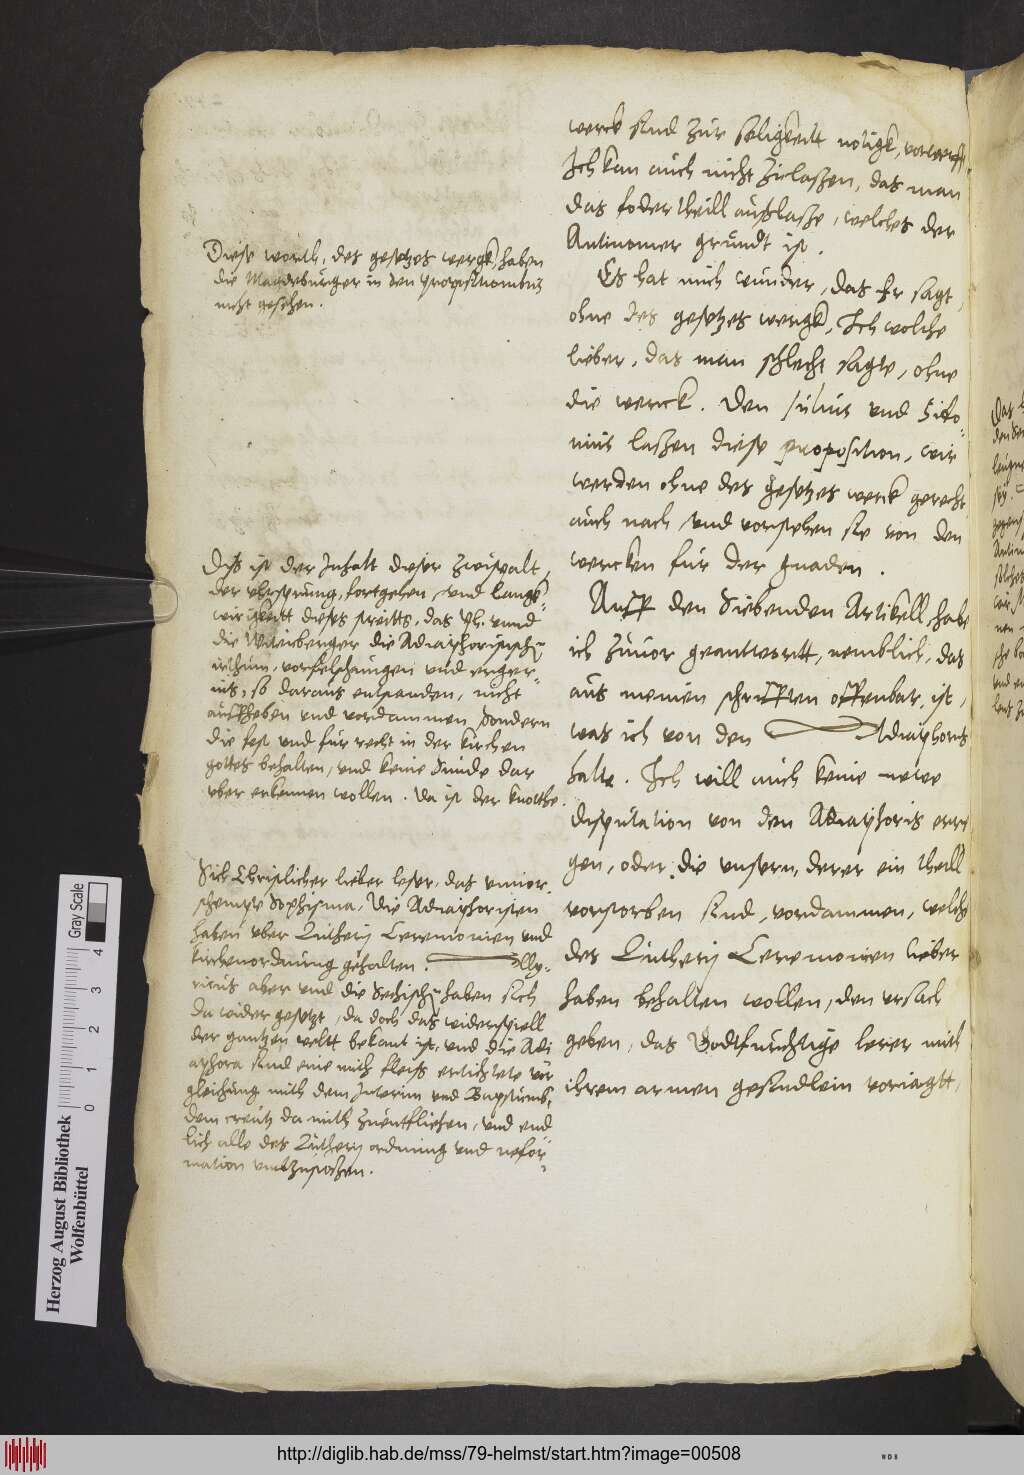 werck sind zur seligkeitt nötigk, vorwerffe,
Ich kan auch nicht zulaßen, das man
das foder theill außlaße, welches der
Antinomer gründt ist.
Es hat mich wunder, das Er sagt,
ohne des gesetzes wergk, Ich wolthe
lieber, das man schlecht sagte, ohne
die werck. Den Julius und Sido-
nius laßen diese proposition, wir
werden ohne des gesetzes werck gerecht
auch nach und vorstehen sie von den
wercken für der gnaden.
Auff den Siebenden Artikell, habe
ich zuuor geantwortt, nemblich, das
aus meinen schrifften offenbar ist,
was ich von den Adiaphoris
halte. Ich will auch keine newe
disputation von den Adiaphoris erre
gen, oder die unsern, derer ein theill
vorstorben sind, vordammen, welche
des Lutherj Ceremonien lieber
haben behalten wollen, den ursach
geben, das Godtfurchtige lerer mith
ihrem armen gesindlein voriagtt,
Diese worth, des gesetzes werck, haben
die Magdeburger in den propositionibus
nicht gesehen.
Diß ist der Inhalt dieser zwispalt,
der uhrsprüng, fortgehen, und langk-
wirigkeitt dieses streitts, das Ph. unnd
die Wittenberger die Adiaphoristisch
irthum, vorfelschungen und erger-
nis, so daraus entstanden, nicht
auffheben und vordammen, Sondern
die fest und für recht in der kirchen
gottes behalten, und keine Sünde dar
uber erkennen wollen. Da ist der knothe.
Sich Christlicher lieber leser, das unuor
schempte Sophisma, Die Adiaphoristen
haben uber Lutherj Ceremonien und
kirchenordnung gehalten. Illy-
ricus aber und die Sechisch haben sich
da wider gesetzt, da doch das widerspiell
der gantzen weltt bekant ist, und die Adi
aphora sind eine mith fleiß ertichtete vor
gleichung mith dem Interim und Bapstumb,
dem creutz da mith zuentfliehen, und end
lich alle des Lutherj ordnung und refor-
mation umbzustoßen.
Herzog August Bibliothek
Wolfenbüttel
Gray Scale
0 1 2 3 4
http://diglib.hab.de/mss/79-helmst/start.htm?image=00508